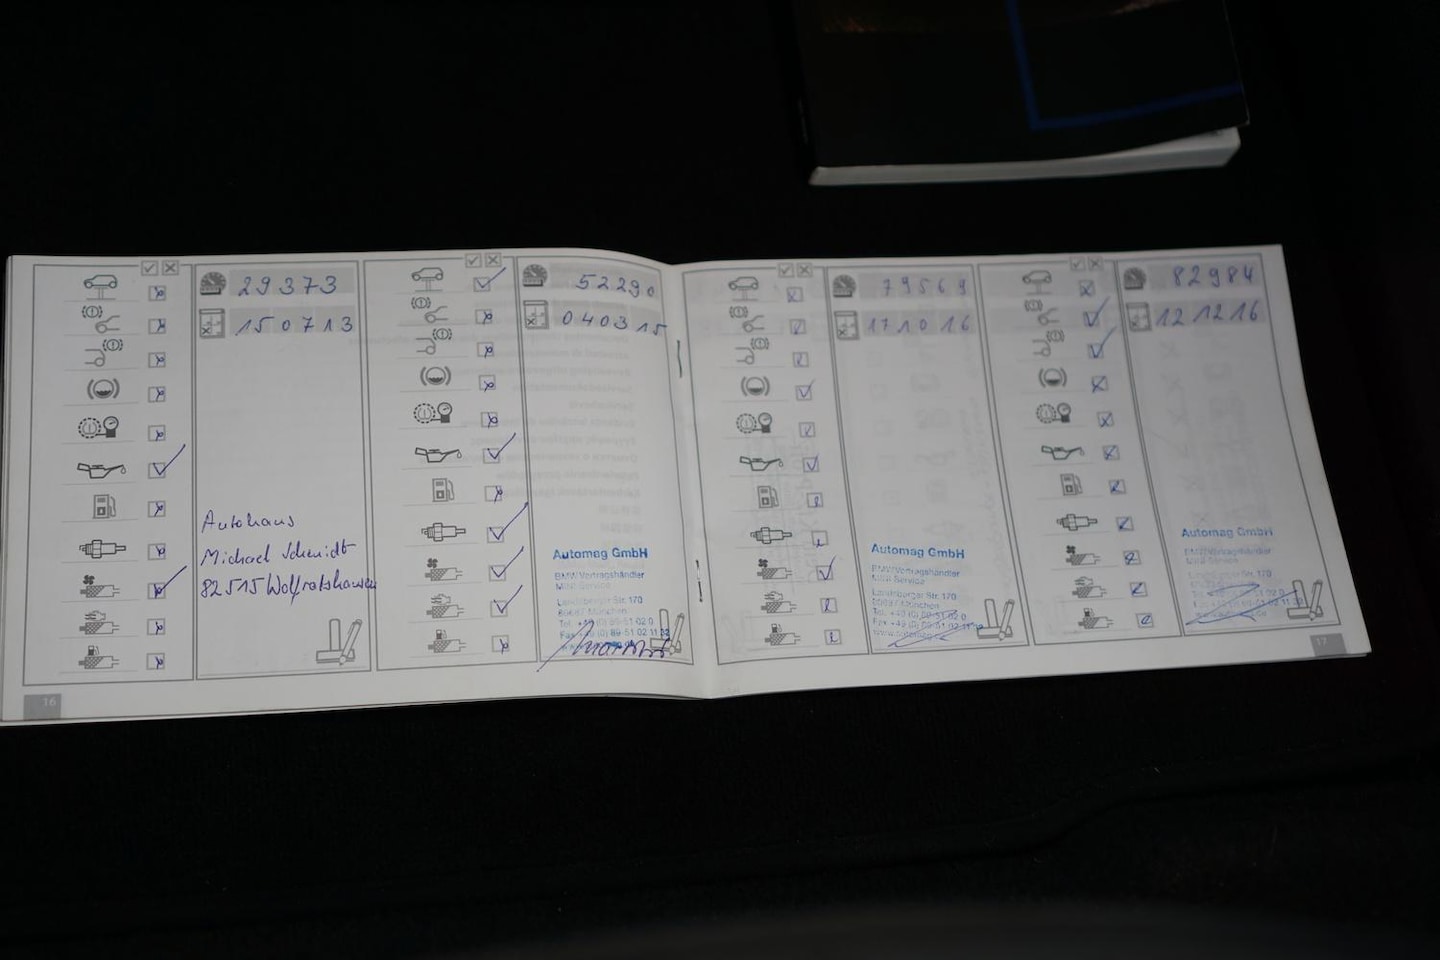 29373
150713
Autohaus
Michael Schmidt
82515 Wolfratshausen
16
52290
040315
Automag GmbH
BMW Vertragshändler
MINI Service
Landsberger Str. 170
80687 München
Tel. +49 (0) 89-51 02 0
Fax +49 (0) 89-51 02 11 32
79569
171016
Automag GmbH
BMW Vertragshändler
MINI Service
Landsberger Str. 170
80687 München
Tel. +49 (0) 89-51 02 0
82984
121216
Automag GmbH
BMW Vertragshändler
MINI Service
17